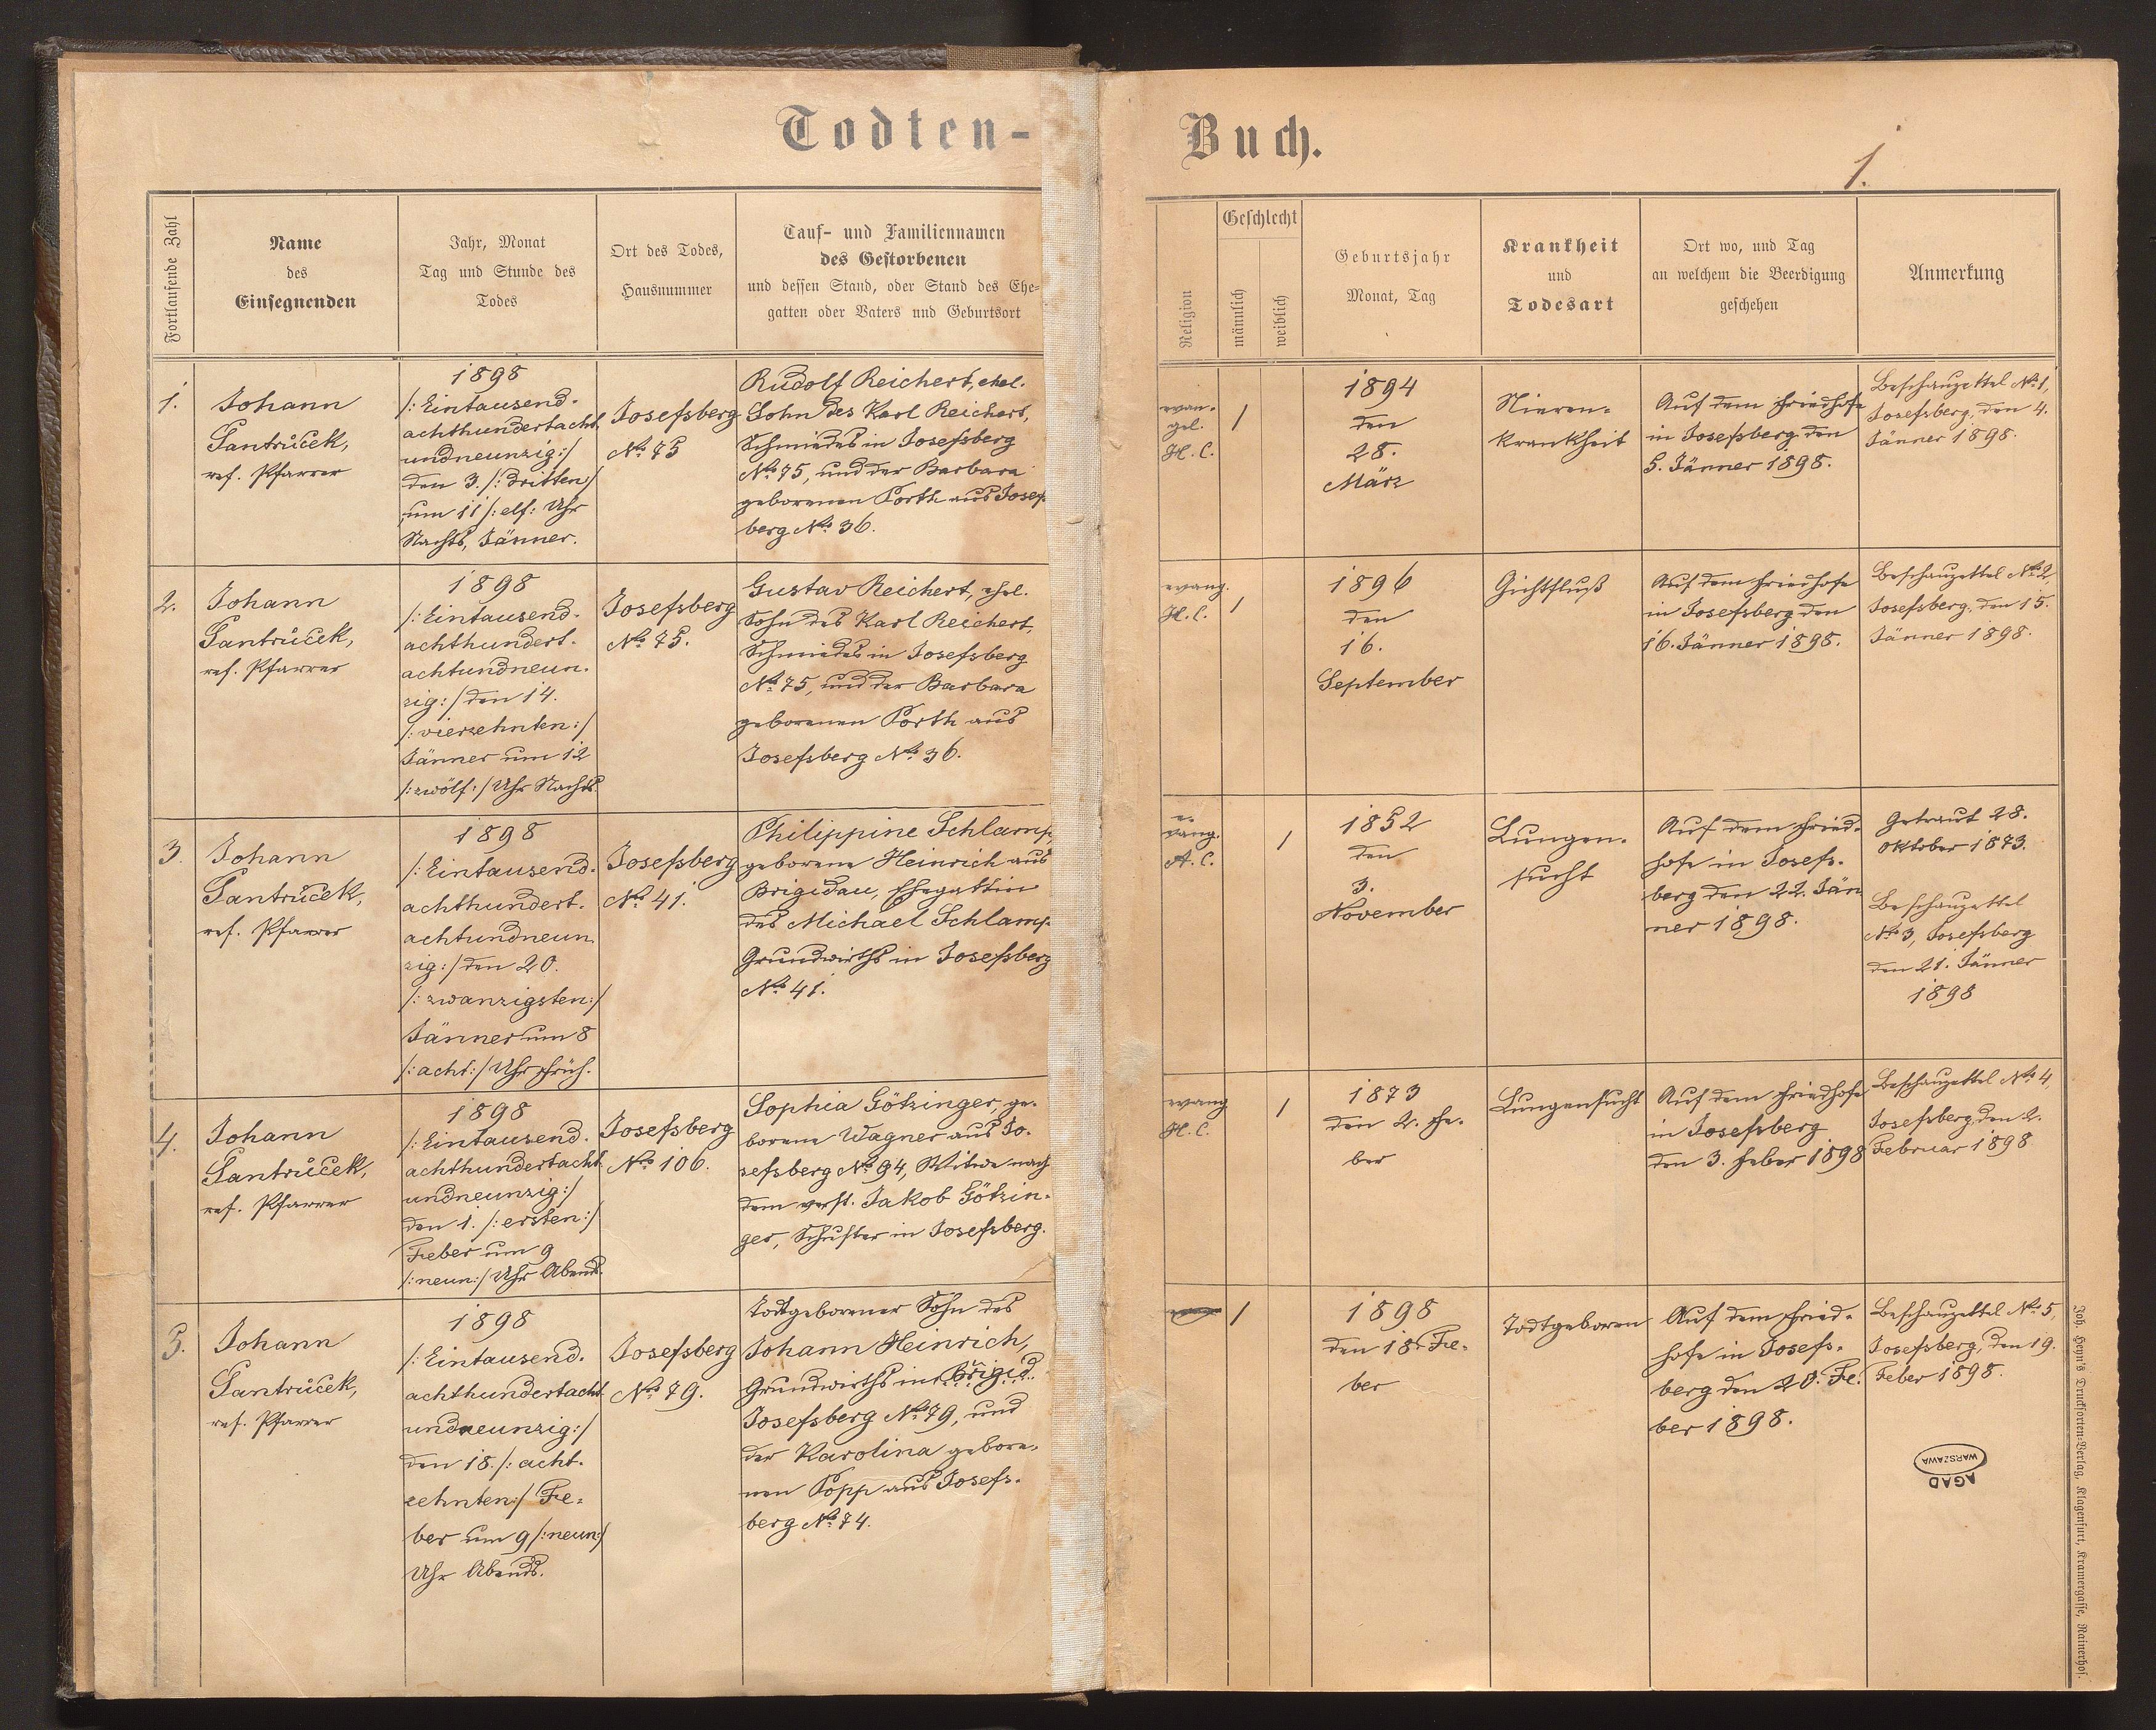 Todten-
Buch.
1.
Fortlaufende Zahl
Name
des
Einsegnenden
Jahr, Monat
Tag und Stunde des
Todes
Ort des Todes,
Hausnummer
Tauf- und Familiennamen
des Gestorbenen
und dessen Stand, oder Stand des Ehe-
gatten oder Vaters und Geburtsort
Religion
Geschlecht
männlich
weiblich
Geburtsjahr
Monat, Tag
Krankheit
und
Todesart
Ort wo, und Tag
an welchem die Beerdigung
geschehen
Anmerkung
1.
Johann
Jantrůček,
ref. Pfarrer
1898
/: Eintausend-
achthundertacht
undneunzig:/
den 3. /: dritten/
um 11 /: elf: Uhr
Nachts, Jänner.
Josefsberg
No 75
Rudolf Reichert, ehel.
Sohn des Karl Reichert,
Schmiedes in Josefsberg
No 75, und der Barbara
geborenen Porth aus Josef
berg No 36.
evan-
gel.
H. C.
1
1894
den
28.
März
Nieren-
krankheit
Auf dem Friedhofe
in Josefsberg den
5. Jänner 1898.
Beschauzettel No 1,
Josefsberg, den 4.
Jänner 1898.
2.
Johann
Jantrůček,
ref. Pfarrer
1898
/: Eintausend-
achthundert-
achtundneun-
zig:/ den 14.
/: vierzehnten:/
Jänner um 12
/: zwölf:/ Uhr Nachts.
Josefsberg
No 75.
Gustav Reichert, ehel.
Sohn des Karl Reichert,
Schmiedes in Josefsberg
No 75, und der Barbara
geborenen Porth aus
Josefsberg No 36.
evang.
H. C.
1
1896
den
16.
September
Gichtfluß
Auf dem Friedhofe
in Josefsberg den
16. Jänner 1898.
Beschauzettel No 2,
Josefsberg, den 15.
Jänner 1898.
3.
Johann
Jantrůček,
ref. Pfarrer
1898
/: Eintausend-
achthundert-
achtundneun
zig:/ den 20.
/: zwanzigsten:/
Jänner um 8
/: acht:/ Uhr früh.
Josefsberg
No 41.
Philippine Schlamp,
geborene Heinrich aus
Brigidau, Ehegattin
des Michael Schlamp
Grundwirths in Josefsberg
No 41.
e-
vang.
A. C.
1
1852
den
3.
November
Lungen-
sucht
Auf dem Fried-
hofe in Josefs-
berg den 22. Jän
ner 1898.
Getraut 28.
Oktober 1873.
Beschauzettel
No 3, Josefsberg
den 21. Jänner
1898
4.
Johann
Jantrůček,
ref. Pfarrer
1898
/: Eintausend-
achthundertacht
undneunzig:/
den 1. /: ersten:/
Feber um 9
/: neun:/ Uhr Abends.
Josefsberg
No 106.
Sophia Götzinger, ge-
borene Wagner aus Jo-
sefsberg No 94, Witwe nach
dem verst. Jakob Götzin-
ger, Schuster in Josefsberg.
evang
H. C.
1
1873
den 2. Fe-
ber
Lungensucht
Auf dem Friedhofe
in Josefsberg
den 3. Feber 1898
Beschauzettel No 4,
Josefsberg, den 2.
Februar 1898
5.
Johann
Jantrůček,
ref. Pfarrer
1898
/: Eintausend-
achthundertacht
undneunzig:/
den 18. /: acht-
zehnten:/ Fe-
ber um 9 /: neun:/
Uhr Abends.
Josefsberg
No 79.
Todtgeborener Sohn des
Johann Heinrich,
Grundwirths in Brigid.
Josefsberg No 79, und
der Karolina gebore-
nen Popp aus Josefs-
berg No 74.
1
1898
den 18. Fe-
ber
Todtgeboren
Auf dem Fried-
hofe in Josefs-
berg den 20. Fe-
ber 1898.
Beschauzettel No 5,
Josefsberg, den 19.
Feber 1898.
AGAD
WARSZAWA
Joh. Heyn's Drucksorten-Verlag, Klagenfurt, Kramergasse, Rainerhof.